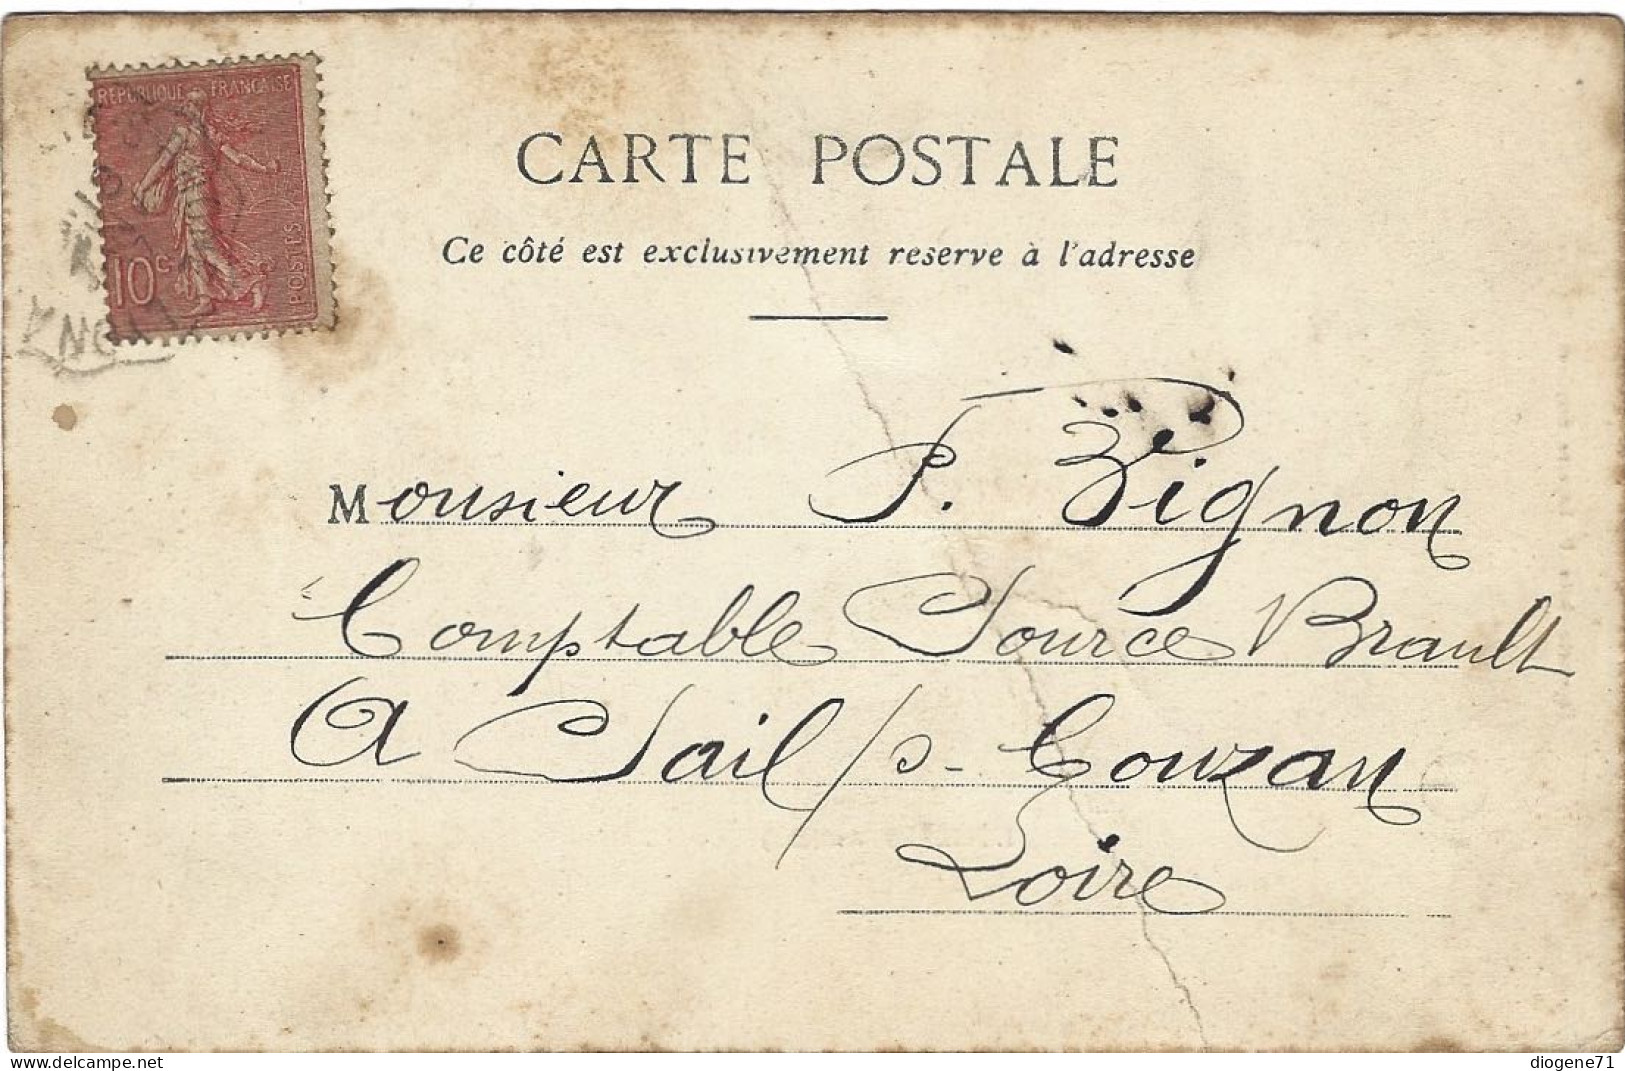 REPUBLIQUE FRANÇAISE
10c
POSTES
CARTE POSTALE
Ce côté est exclusivement reserve à l'adresse
Monsieur P. Vignon
Comptable Source Brault
A Sail /s- Couzan
Loire
diogene71